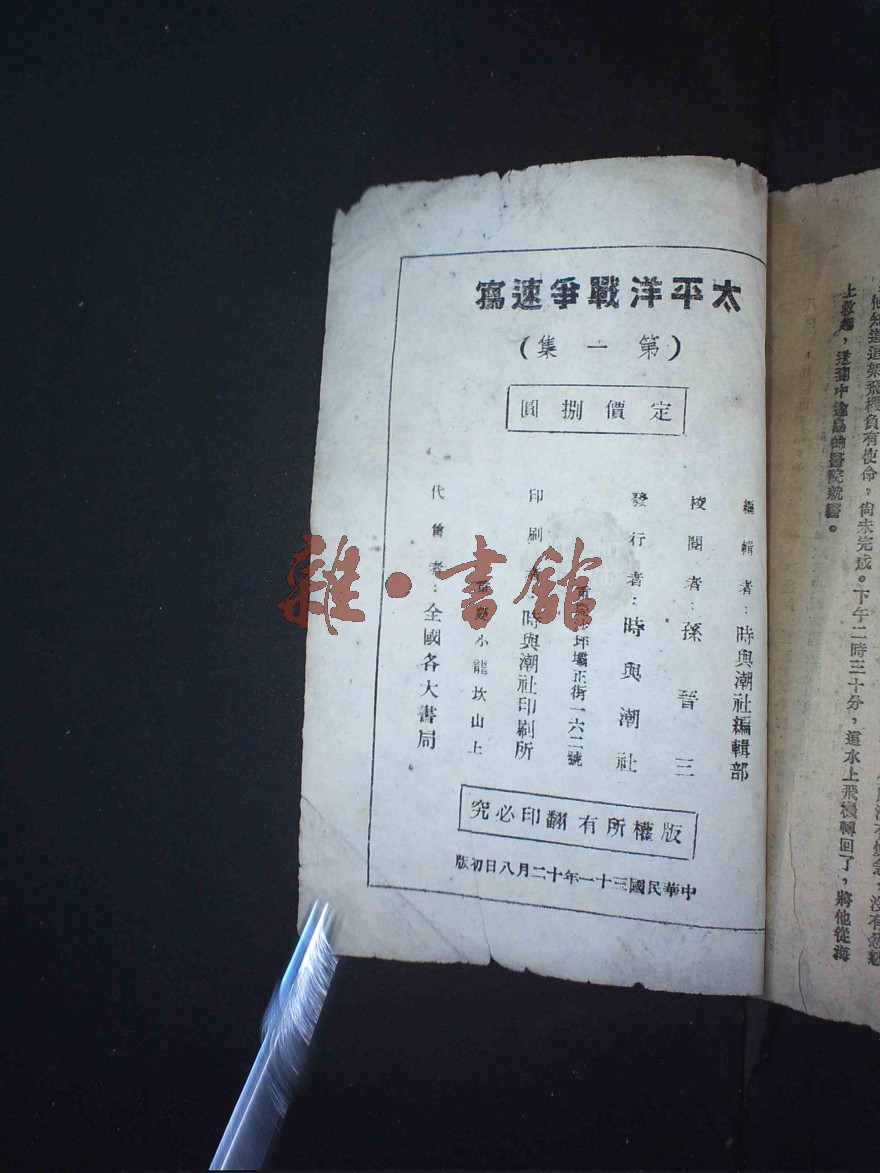 太平洋戰爭速寫
(第一集)
定價捌圓
編輯者：時與潮社編輯部
校閱者：孫晉三
發行者：時與潮社
坪壩正街一六二號
印刷者：時與潮社印刷所
重慶小龍坎山上
代售者：全國各大書局
版權所有翻印必究
中華民國三十一年十二月八日初版
雜·書館
他知道這架飛機負有使命，尙未完成。下午二時三十分，這水上飛機轉回了，將他從海
上救起，送到中途島的醫院就醫。